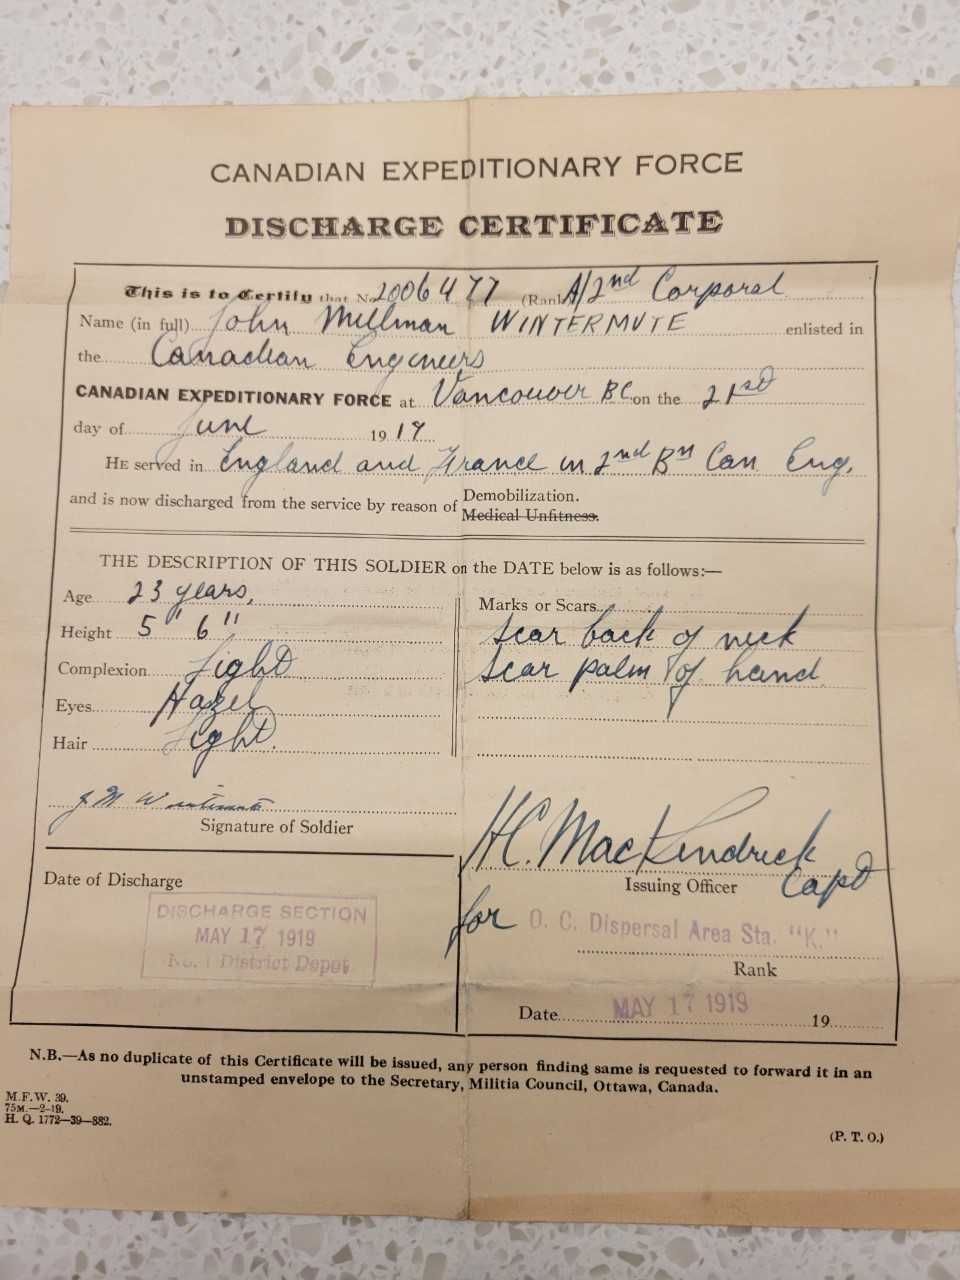 CANADIAN EXPEDITIONARY FORCE
DISCHARGE CERTIFICATE
This is to Certify that No 2006477 (Rank A/2nd Corporal
Name (in full) John Millman WINTERMUTE enlisted in
the Canadian Engineers
CANADIAN EXPEDITIONARY FORCE at Vancouver BC on the 21st
day of June 1917
HE served in England and France in 2nd Bn Can. Eng.
and is now discharged from the service by reason of Demobilization.
Medical Unfitness.
THE DESCRIPTION OF THIS SOLDIER on the DATE below is as follows:—
Age 23 years,
Height 5" 6"
Complexion Light
Eyes Hazel
Hair Light.
Marks or Scars
scar back of neck
scar palm of hand
J M Wintermute
Signature of Soldier
H C. MacKendrick
Issuing Officer Capt
Date of Discharge
DISCHARGE SECTION
MAY 17 1919
No. 1 District Depot
for O. C. Dispersal Area Sta. "K."
Rank
Date MAY 17 1919 19
N.B.—As no duplicate of this Certificate will be issued, any person finding same is requested to forward it in an
unstamped envelope to the Secretary, Militia Council, Ottawa, Canada.
M.F.W. 39.
75M.—2-19.
H. Q. 1772—39—882.
(P. T. O.)